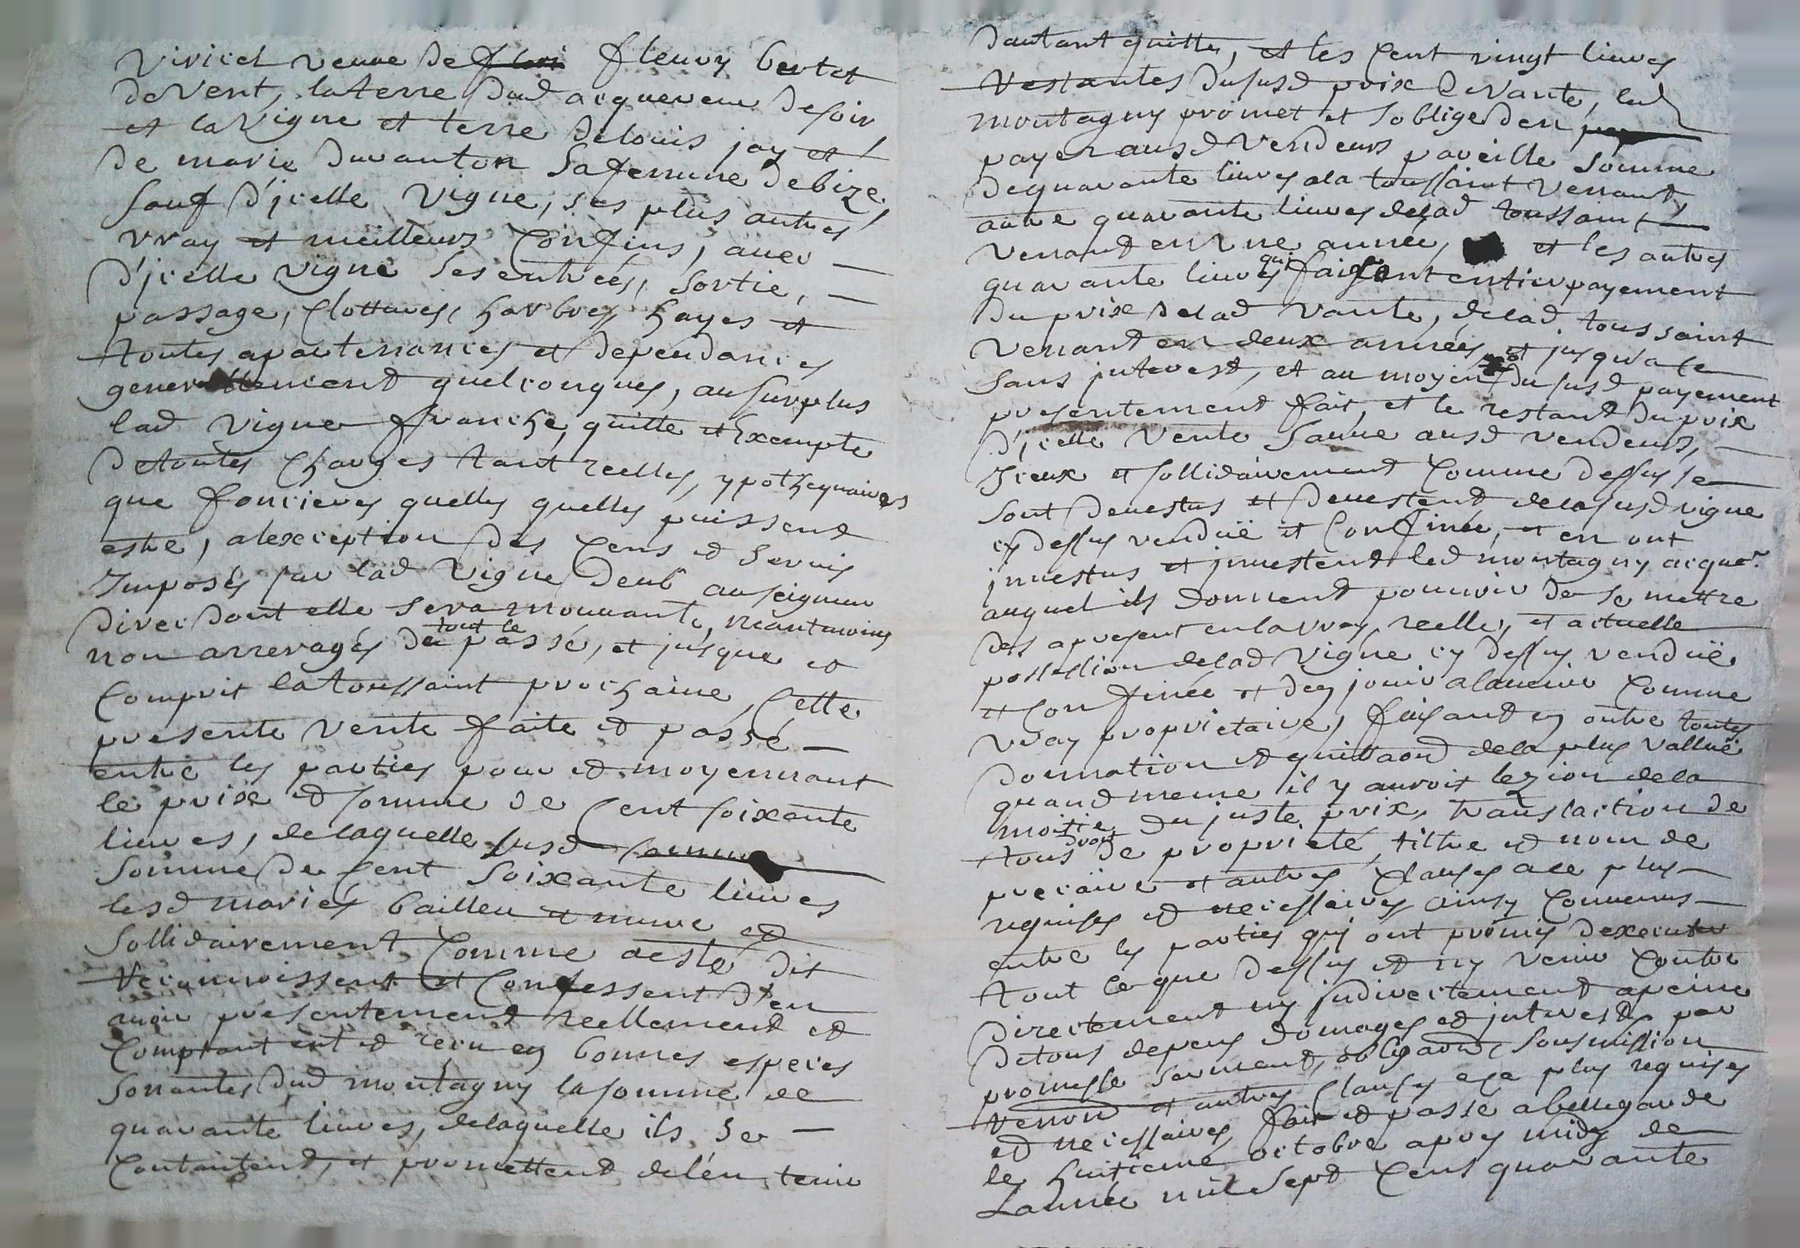 Viricel veuve de fleury bertet
de Vent, la terre dud acquereur de soir
et la Vigne et terre de louis jay et
de marie duranton sa femme de bize
sauf d'jcelle Vigne, ses plus autres
vray et meilleurs Confins, avec
d'jcelle vigne ses entrées, sortie,
passage, Clottures, harbres hayes et
toutes apartenances et dependances
generallement quelconques, au surplus
lad Vigne franche, quitte et Exempte
detoutes Charges tant reelles, ypothequaires
que foncieres quelles quelles puissent
estre, alexception des Cens et servis
Imposés sur lad Vigne deub au seigneur
direc dont elle sera mouvante, neantmoins
non arreragés de tout le passé, et jusque et
Comprit la toussaint prochaine, Cette
presente vente faite et passé
entre les parties pour et moyennant
le prix et somme de Cent soixante
livres, delaquelle susd
somme de Cent soixante livres
lesd mariés bailleu et
sollidairement Comme aesté dit
reconnoissent et Confessent d'en
avoir présentement reellement et
Comptant et receu en bonnes especes
sonnantes dud montagny la somme de
quarante livres, delaquelle ils se
Contentent, et promettent delén tenir
dautant quitte, et les Cent vingt livres
restantes du susd prix de Vante, led
montagny promet et soblige den
payer ausd Vendeurs pareille somme
dequarante livres ala toussaint Venant,
autre quarante livres delad toussaint
Venant en Une année, et les autres
quarante livres qui faisont entier payement
du prix delad Vante, delad toussaint
Venant en deux années, et jusqu'a ce
sans jnterest, et au moyen du susd payement
presentement fait, et le restant du prix
d'jcelle Vente sauve ausd vendeurs,
Jceux et sollidairement Comme dessus se
sont devestus et devestent delasusd vigne
cy dessus venduë et Confinée, et en ont
jnvestus et jnvestent led montagny acquer.r
auquel ils donnent pouvoir de se mettre
des apresent en la vray, reelle, et actuelle
possession delad Vigne cy dessus venduë
et Confinée et den jouir alavenir Comme
vray proprietaire, faisant en outre toutes
donnation et quittaōn dela plus valluë
quand meme il y auroit lezion dela
moitie du juste prix, translaction de
tous droit de proprieté, tiltre et nom de
precaire et autres Clauses ace plus
requises et necessaires ainsy Convenus
entre les parties qui ont promis dexecuter
tout ce que dessus et ny venir Contre
directement ny jndirectement apeine
detous depens domages et jnterests par
promesse serment, obligaōn, sousmission
renonō et autres Clauses ace plus requises
et necessaires, fait et passé a bellegarde
le huitieme octobre apres midy de
Lannée mil sept Cens quarante